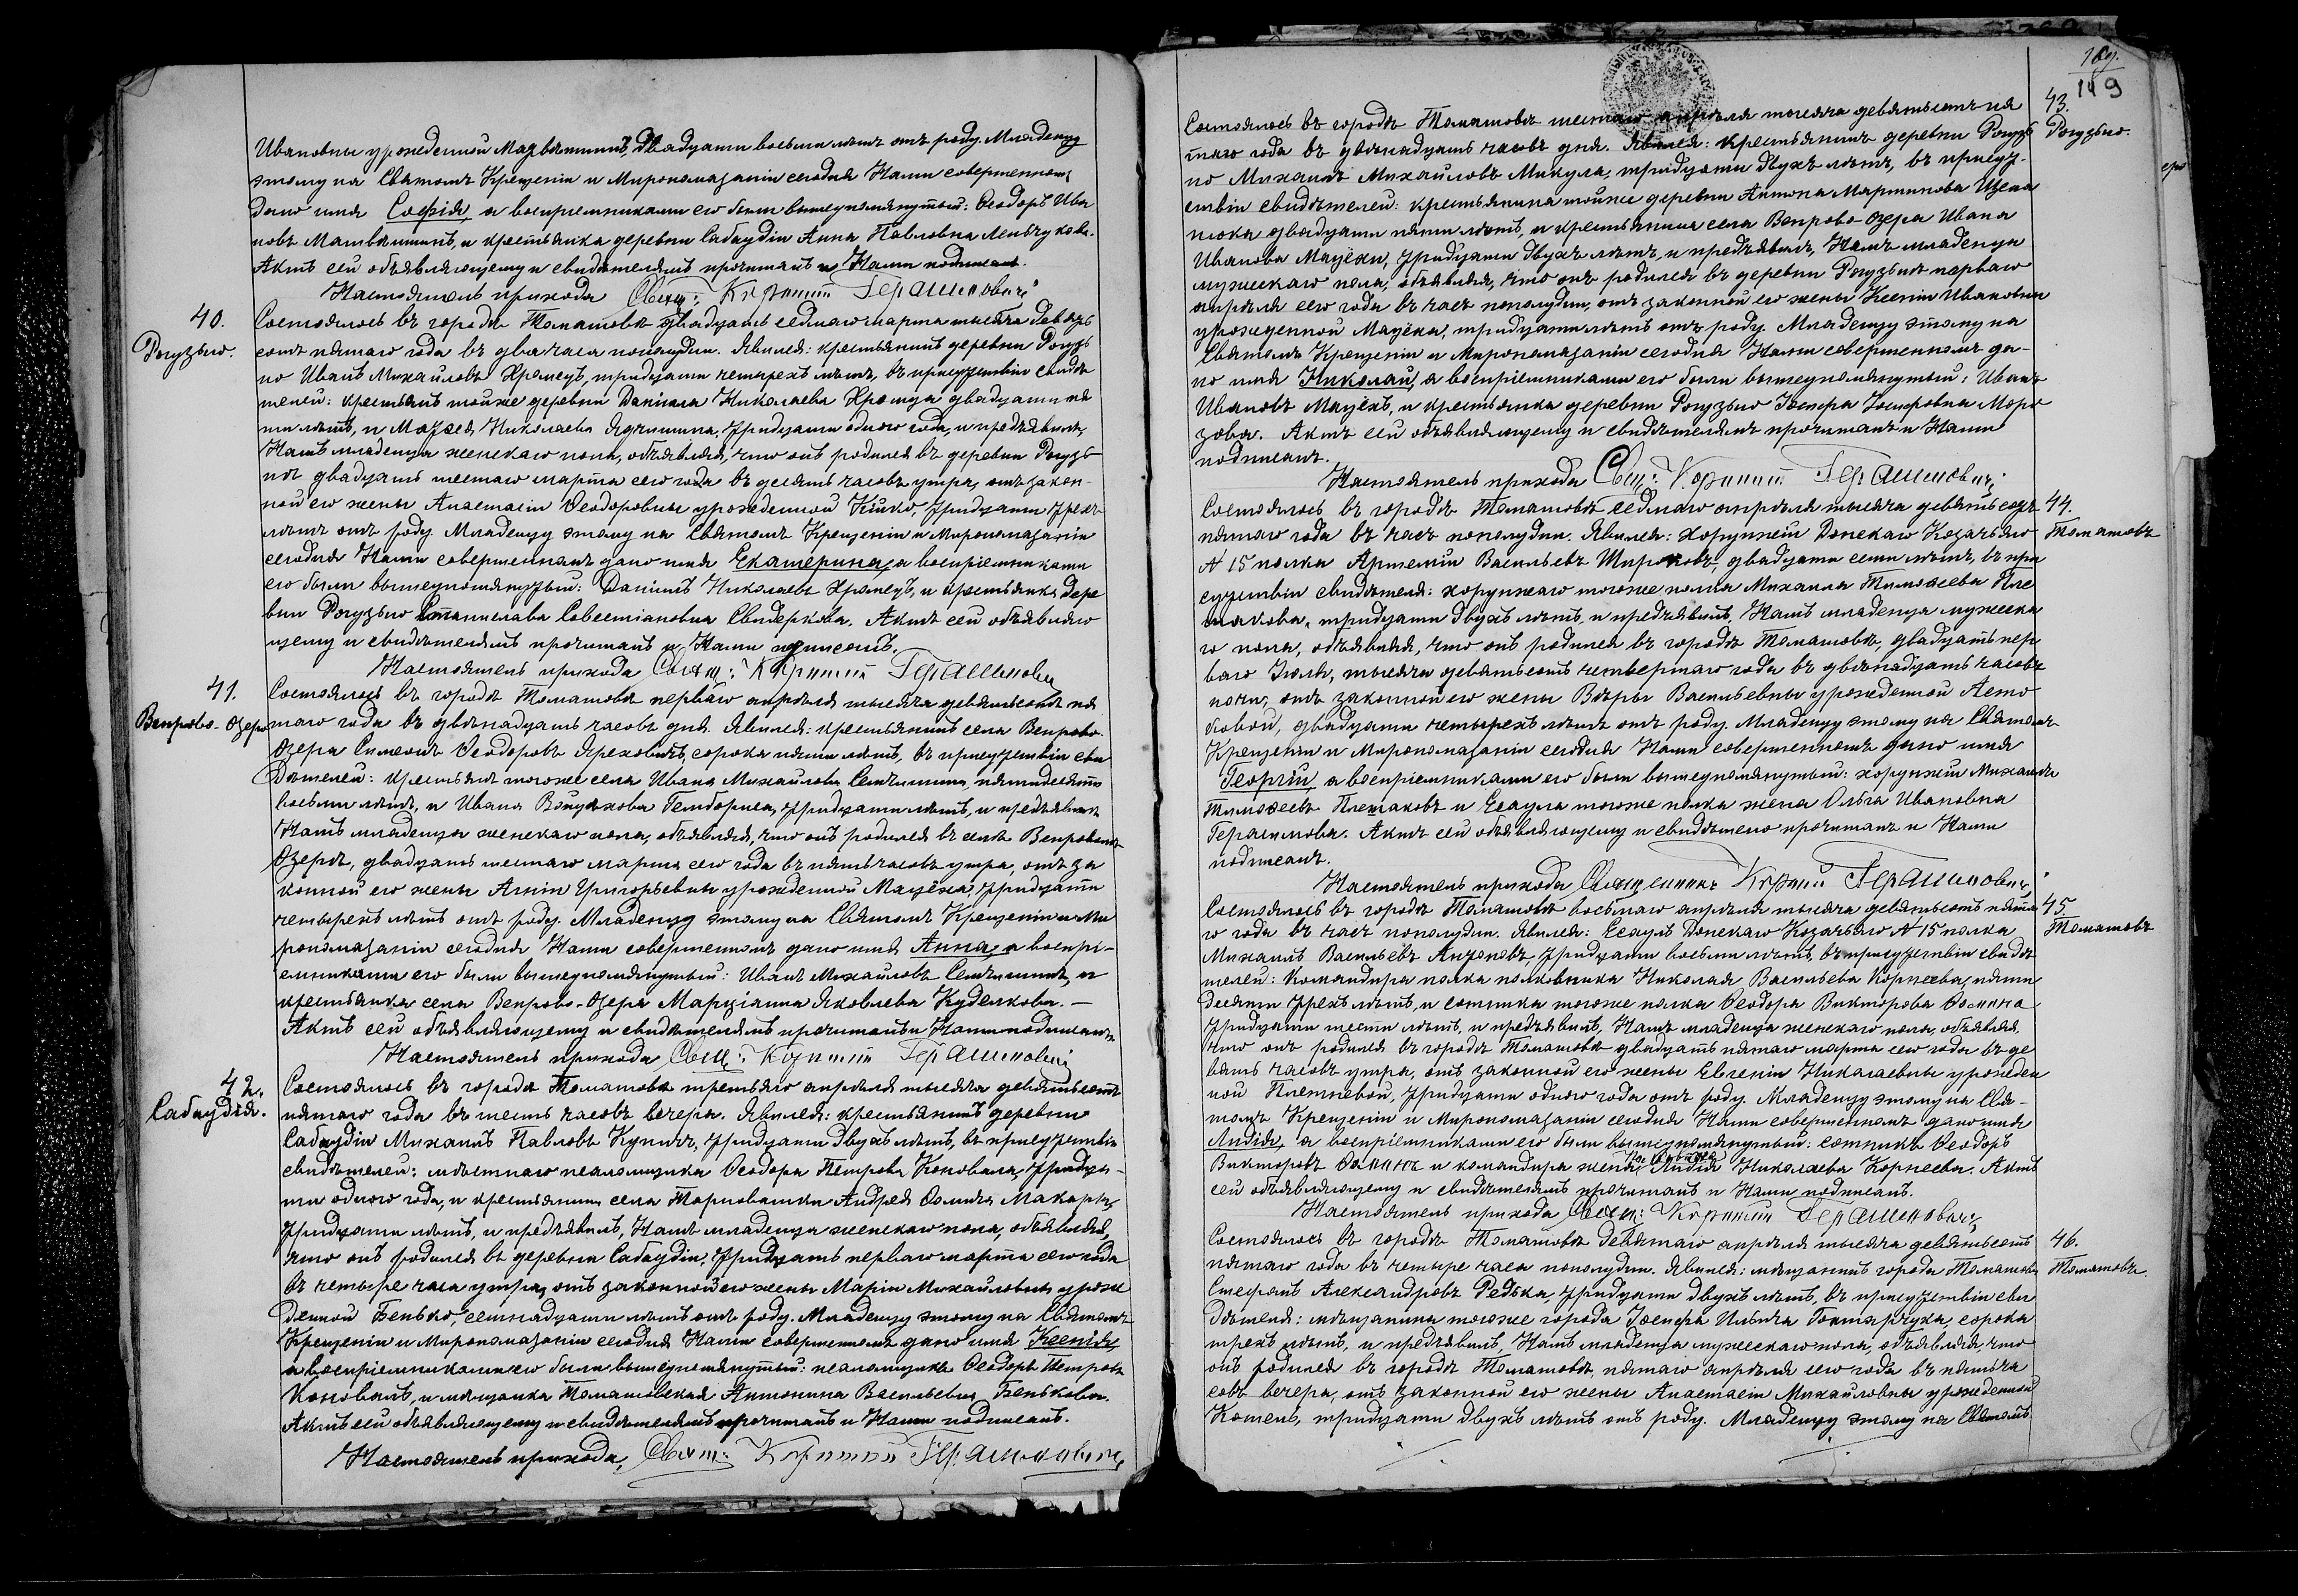 Ивановны урожденной Матвѣишинъ, двадцати восьми лѣтъ отъ роду. Младенцу
этому на Святомъ Крещеніи и Миропомазаніи сегодня Нами совершенномъ
дано имя Софія, а воспріемниками его были вышеупомянутый: Ѳеодоръ Ива
новъ Матвѣишинъ, и крестьянка деревни Сабаудіи Анна Павловна Левчукова.
Актъ сей объявляющему и свидѣтелямъ прочитанъ и Нами подписанъ.
Настоятель прихода Свящ: Герашиновичъ
40.
Рогузьно.
Состоялось въ городѣ Томашовѣ двадцать седмаго марта тысяча девять
сотъ пятаго года въ два часа пополудни. Явился: крестьянинъ деревни Рогузь
но Иванъ Михайловъ Хромецъ, тридцати четырехъ лѣтъ, въ присутствіи свидѣ
телей: крестьянъ тойже деревни Даніила Николаева Хромца двадцати пя
ти лѣтъ, и Николаева тридцати одного года, и предъявилъ
Намъ младенца женскаго пола, объявляя, что онъ родился въ деревни Рогузь
нѣ двадцать шестаго марта сего года въ десять часовъ утра, отъ закон-
ной его жены Анастасіи Ѳеодоровны урожденной тридцати трехъ
лѣтъ отъ роду. Младенцу этому на Святомъ Крещеніи и Миропомазаніи
сегодня Нами совершенномъ дано имя Екатерина, а воспріемниками
его были вышеупомянутый: Даніилъ Николаевъ Хромецъ, и крестьянка дере
вни Рогузьно Станислава Совестіановна Свидеркова. Актъ сей объявляю
щему и свидѣтелямъ прочитанъ и Нами подписанъ.
Настоятель прихода Свящ: Герашиновичъ
41.
Вепрово-Озеро
Состоялось въ городѣ Томашовѣ перваго апрѣля тысяча девятьсотъ пя
таго года въ двѣнадцать часовъ дня. Явился: крестьянинъ села Вепрово-
Озера Симеонъ Ѳеодоровъ сорока пяти лѣтъ, въ присутствіи сви
дѣтелей: крестьянъ тогоже села Ивана Михайлова пятидесяти
восьми лѣтъ, и Ивана тридцати лѣтъ, и предъявилъ
Намъ младенца женскаго пола, объявляя, что онъ родился въ селѣ Вепровомъ
Озерѣ, двадцать шестаго марта сего года въ пять часовъ утра, отъ за
конной его жены Агніи Григорьевны урожденной Мацёха, тридцати
четырехъ лѣтъ отъ роду. Младенцу этому на Святомъ Крещеніи и Ми
ропомазаніи сегодня Нами совершенномъ дано имя Анна, а воспрі-
емниками его были вышеупомянутый: Иванъ Михайловъ и
крестьянка села Вепрово-Озера Марціанна Яковлева Куделкова. -
Актъ сей объявляющему и свидѣтелямъ прочитанъ и Нами подписанъ.
Настоятель прихода Свящ: Герашиновичъ
42.
Сабаудія.
Состоялось въ городѣ Томашовѣ третьяго апрѣля тысяча девятьсотъ
пятаго года въ шесть часовъ вечера. Явился: крестьянинъ деревни
Сабаудіи Михаилъ Павловъ Купичъ, тридцати двухъ лѣтъ, въ присутствіи
свидѣтелей: мѣстнаго псаломщика Ѳеодора Петрова Коновала, тридца-
ти одного года, и крестьянина села Тарноватки Андрея Ѳомича
тридцати лѣтъ, и предъявилъ Намъ младенца женскаго пола, объявляя,
что онъ родился въ деревни Сабаудіи, тридцать перваго марта сего года
въ четыре часа утра, отъ законной его жены Маріи Михайловны урож
денной Бенько, семнадцати лѣтъ отъ роду. Младенцу этому на Святомъ
Крещеніи и Миропомазаніи сегодня Нами совершенномъ дано имя Ксенія,
а воспріемниками его были вышеупомянутый: псаломщикъ Ѳеодоръ Петровъ
Коновалъ, и мѣщанка Томашовская Антонина Васильевна Бенькова.
Актъ сей объявляющему и свидѣтелямъ прочитанъ и Нами подписанъ.
Настоятель прихода, Свящ: Герашиновичъ
149
43.
Рогузьно.
Состоялось въ городѣ Томашовѣ шестаго апрѣля тысяча девятьсотъ пя
таго года въ двѣнадцать часовъ дня. Явился: крестьянинъ деревни Рогузь
но Михаилъ Михайловъ Микула, тридцати двухъ лѣтъ, въ присут-
ствіи свидѣтелей: крестьянина тойже деревни Антона Мартинова
двадцати пяти лѣтъ, и крестьянина села Вепрово-Озера Ивана
Иванова Мацёхи, тридцати двухъ лѣтъ, и предъявилъ, Намъ младенца
мужескаго пола, объявляя, что онъ родился въ деревни Рогузьнѣ перваго
апрѣля сего года въ часъ пополудни, отъ законной его жены Ксеніи Ивановны
урожденной Мацёха, тридцати лѣтъ отъ роду. Младенцу этому на
Святомъ Крещеніи и Миропомазаніи сегодня Нами совершенномъ да-
но имя Николай, а воспріемниками его были вышеупомянутый: Иванъ
Ивановъ Мацёхъ, и крестьянка деревни Рогузьно Іосифа Іосифовна Моро
зова. Актъ сей объявляющему и свидѣтелямъ прочитанъ и Нами
подписанъ.
Настоятель прихода Свящ: Герашиновичъ
44.
Томашовъ
Состоялось въ городѣ Томашовѣ седмаго апрѣля тысяча девятьсотъ
пятаго года въ часъ пополудни. Явился: Хорунжій Донскаго Козачьяго
№ 15 полка Арсеній Васильевъ двадцати семи лѣтъ, въ при
сутствіи свидѣтеля: хорунжаго тогоже полка Михаила Тимоѳеева Пле
шакова, тридцати двухъ лѣтъ, и предъявилъ, Намъ младенца мужеска
го пола, объявляя, что онъ родился въ городѣ Томашовѣ, двадцать пер
ваго Іюля, тысяча девятьсотъ четвертаго года въ двѣнадцать часовъ
ночи, отъ законной его жены Вѣры Васильевны урожденной
двадцати четырехъ лѣтъ отъ роду. Младенцу этому на Святомъ
Крещеніи и Миропомазаніи сегодня Нами совершенномъ дано имя
Георгій, а воспріемниками его были вышеупомянутый: хорунжій Михаилъ
Тимоѳеевъ Плешаковъ и Есаула тогоже полка жена Ольга Ивановна
Герасимова. Актъ сей объявляющему и свидѣтелю прочитанъ и Нами
подписанъ.
Настоятель прихода Священникъ Герашиновичъ
45
Томашовъ
Состоялось въ городѣ Томашовѣ восьмаго апрѣля тысяча девятьсотъ пята
го года въ часъ пополудни. Явился: Есаулъ Донскаго Козачьяго № 15 полка
Михаилъ Васильевъ тридцати восьми лѣтъ, въ присутствіи свидѣ
телей: Командира полка полковника Николая Васильева Корнеева, пяти
десяти трехъ лѣтъ, и сотника тогоже полка Ѳеодора Викторова Ѳомина
тридцати шести лѣтъ, и предъявилъ, Намъ младенца женскаго пола, объявляя,
что онъ родился въ городѣ Томашовѣ двадцать пятаго марта сего года въ де
вять часовъ утра, отъ законной его жены Евгеніи Николаевны урожден
ной Плетневой, тридцати одного года отъ роду. Младенцу этому на Свя-
томъ Крещеніи и Миропомазаніи сегодня Нами совершенномъ дано имя
Лидія, а воспріемниками его были вышеупомянутый: сотникъ Ѳеодоръ
Викторовъ Ѳоминъ и командира жена Лидія Николаева Корнеева. Актъ
сей объявляющему и свидѣтелямъ прочитанъ и Нами подписанъ.
Настоятель прихода Свящ: Герашиновичъ
46.
Томашовъ.
Состоялось въ городѣ Томашовѣ девятаго апрѣля тысяча девятьсотъ
пятаго года въ четыре часа пополудни. Явился: мѣщанинъ города Томашова
Стефанъ Александровъ Редька, тридцати двухъ лѣтъ, въ присутствіи сви
дѣтеля: мѣщанина тогоже города Іосифа Ильича сорока
трехъ лѣтъ, и предъявилъ, Намъ младенца мужескаго пола, объявляя, что
онъ родился въ городѣ Томашовѣ, пятаго апрѣля сего года въ пять ча
совъ вечера, отъ законной его жены Анастасіи Михайловны урожденной
Котель, тридцати двухъ лѣтъ отъ роду. Младенцу этому на Святомъ